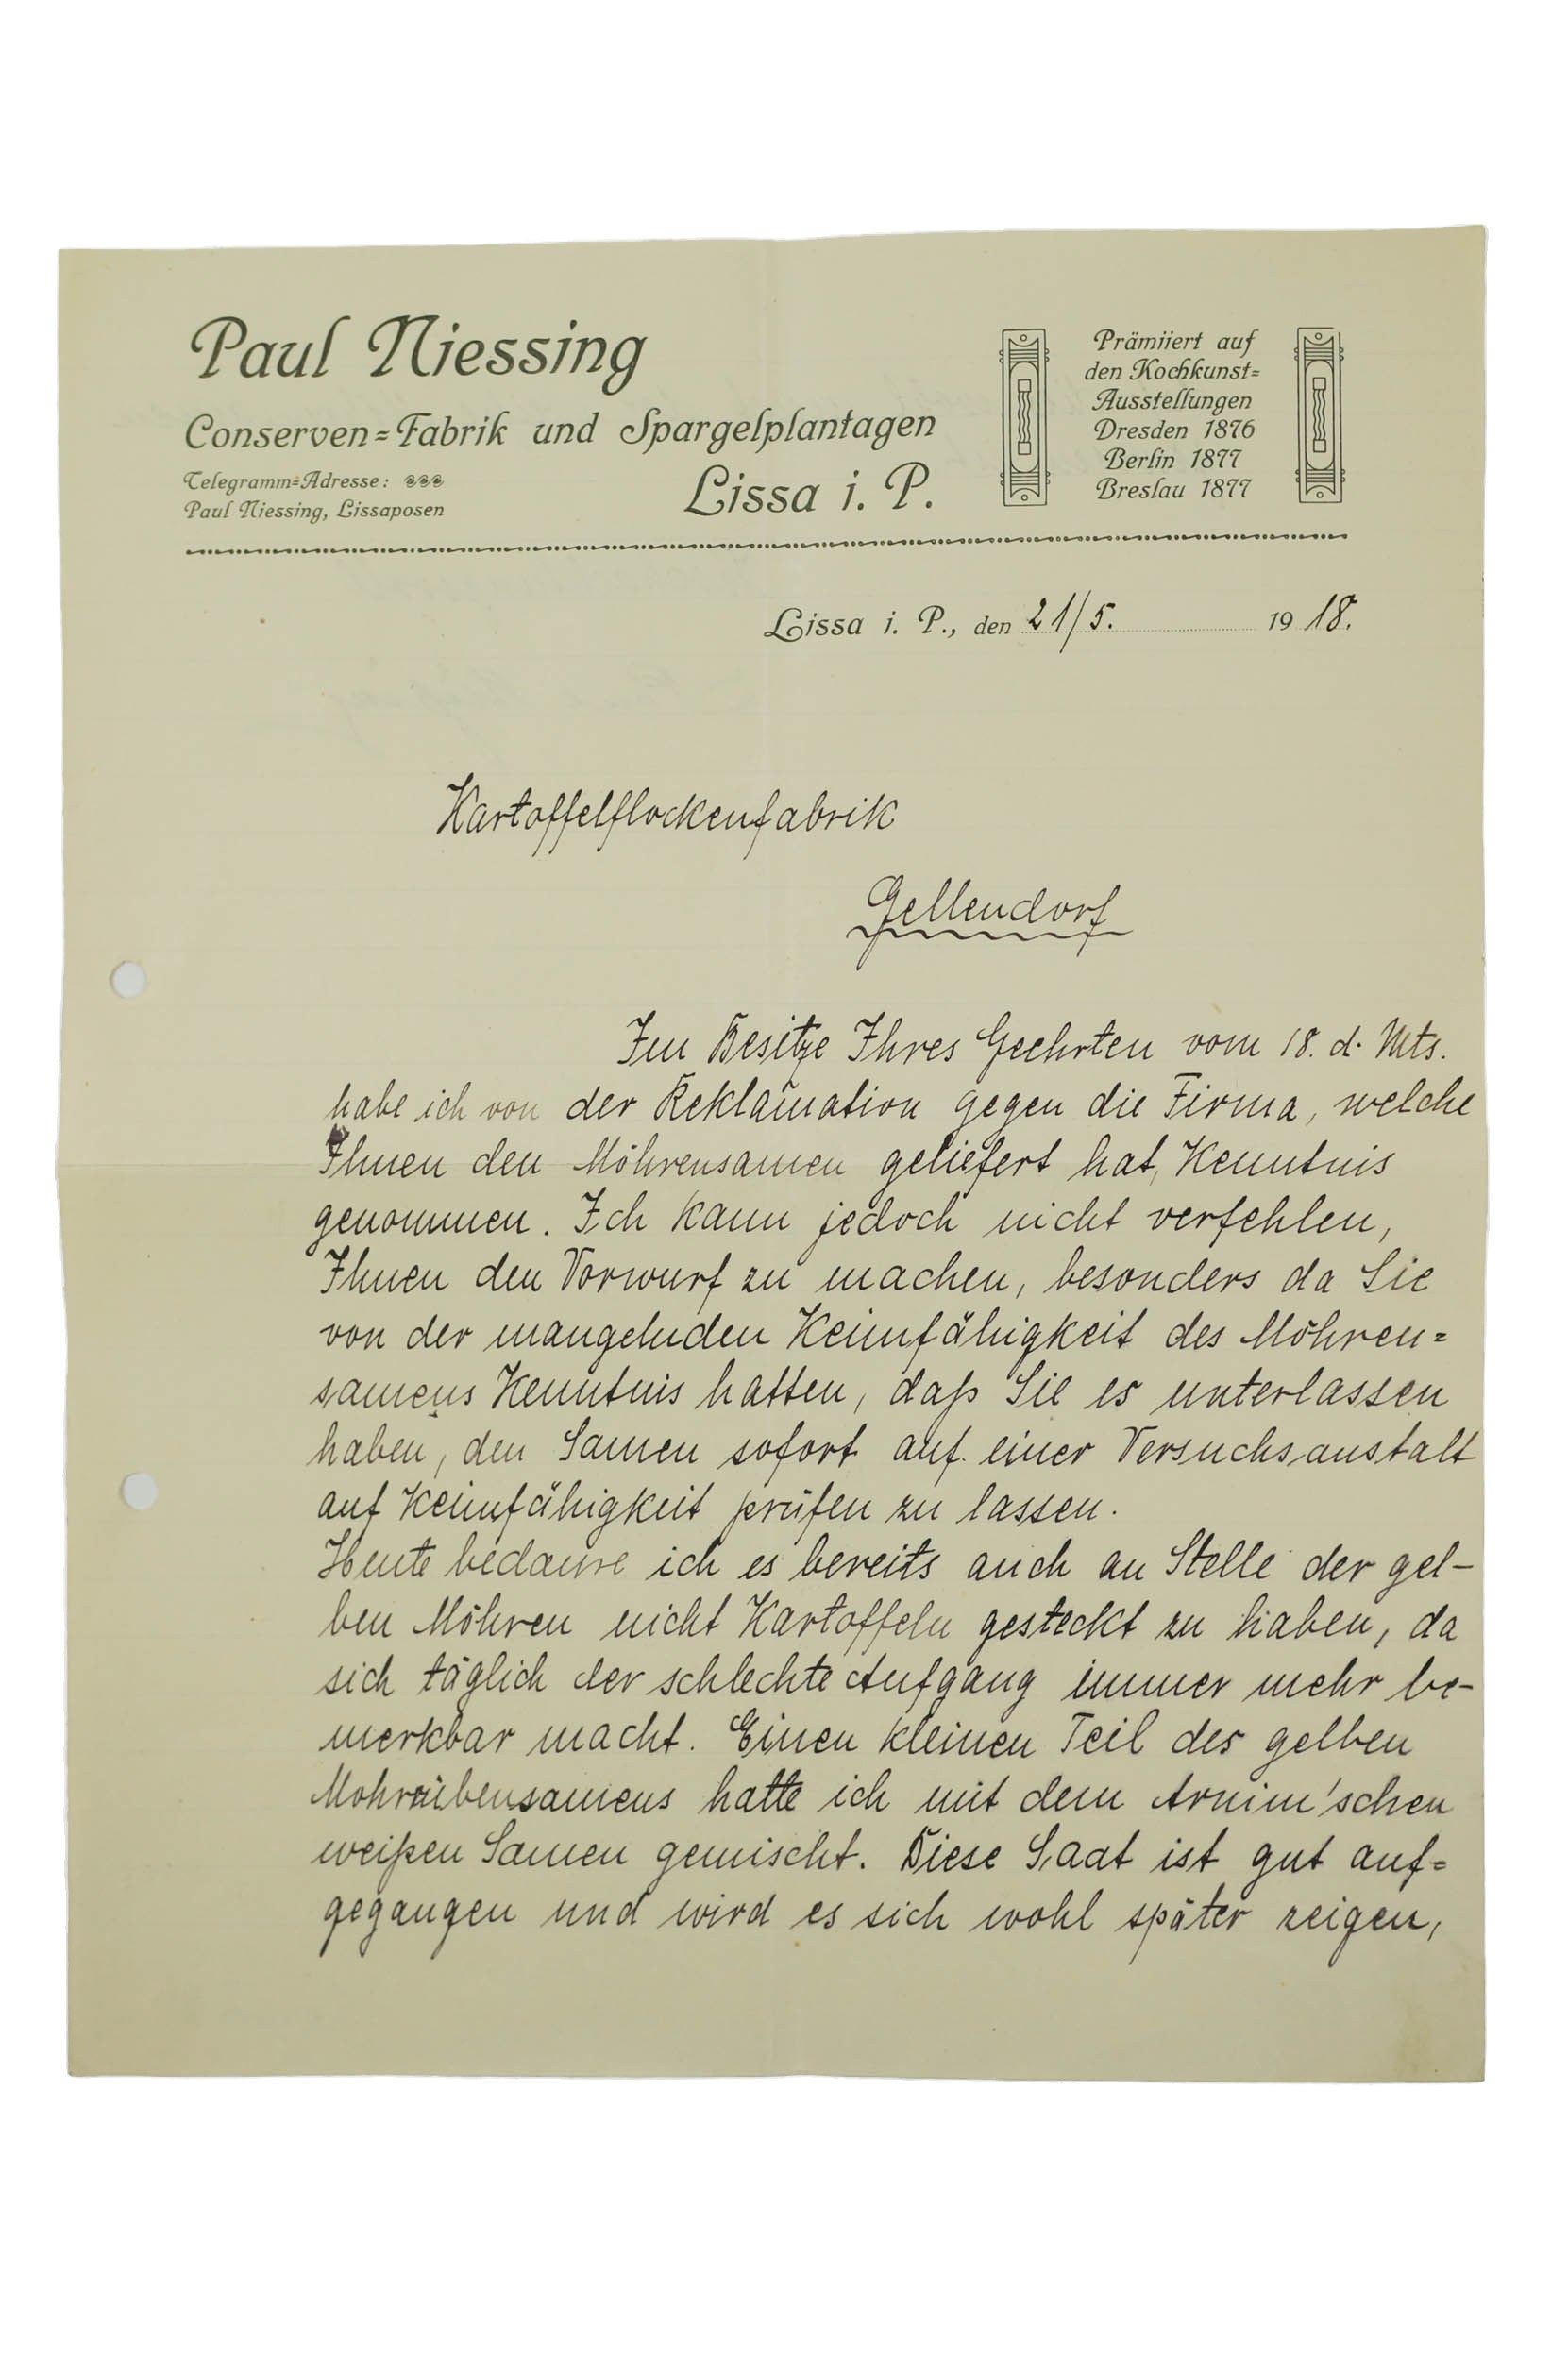 Paul Niessing
Conserven=Fabrik und Spargelplantagen
Telegramm=Adresse:
Paul Niessing, Lissaposen
Lissa i. P.
Prämiiert auf
den Kochkunst=
Ausstellungen
Dresden 1876
Berlin 1877
Breslau 1877
Lissa i. P., den 21/5. 1918.
Kartoffelflockenfabrik
Gellendorf
Im Besitze Ihres Geehrten vom 18. d. Mts.
habe ich von der Reklamation gegen die Firma, welche
Ihnen den Möhrensamen geliefert hat, Kenntnis
genommen. Ich kann jedoch nicht verfehlen,
Ihnen den Vorwurf zu machen, besonders da Sie
von der mangelnden Keimfähigkeit des Möhren=
samens Kenntnis hatten, daß Sie es unterlassen
haben, den Samen sofort auf einer Versuchsanstalt
auf Keimfähigkeit prüfen zu lassen.
Heute bedaure ich es bereits auch an Stelle der gel-
ben Möhren nicht Kartoffeln gesteckt zu haben, da
sich täglich der schlechte Aufgang immer mehr be-
merkbar macht. Einen kleinen Teil des gelben
Mohrrübensamens hatte ich mit dem Arnim'schen
weißen Samen gemischt. Diese Saat ist gut auf=
gegangen und wird es sich wohl später zeigen,